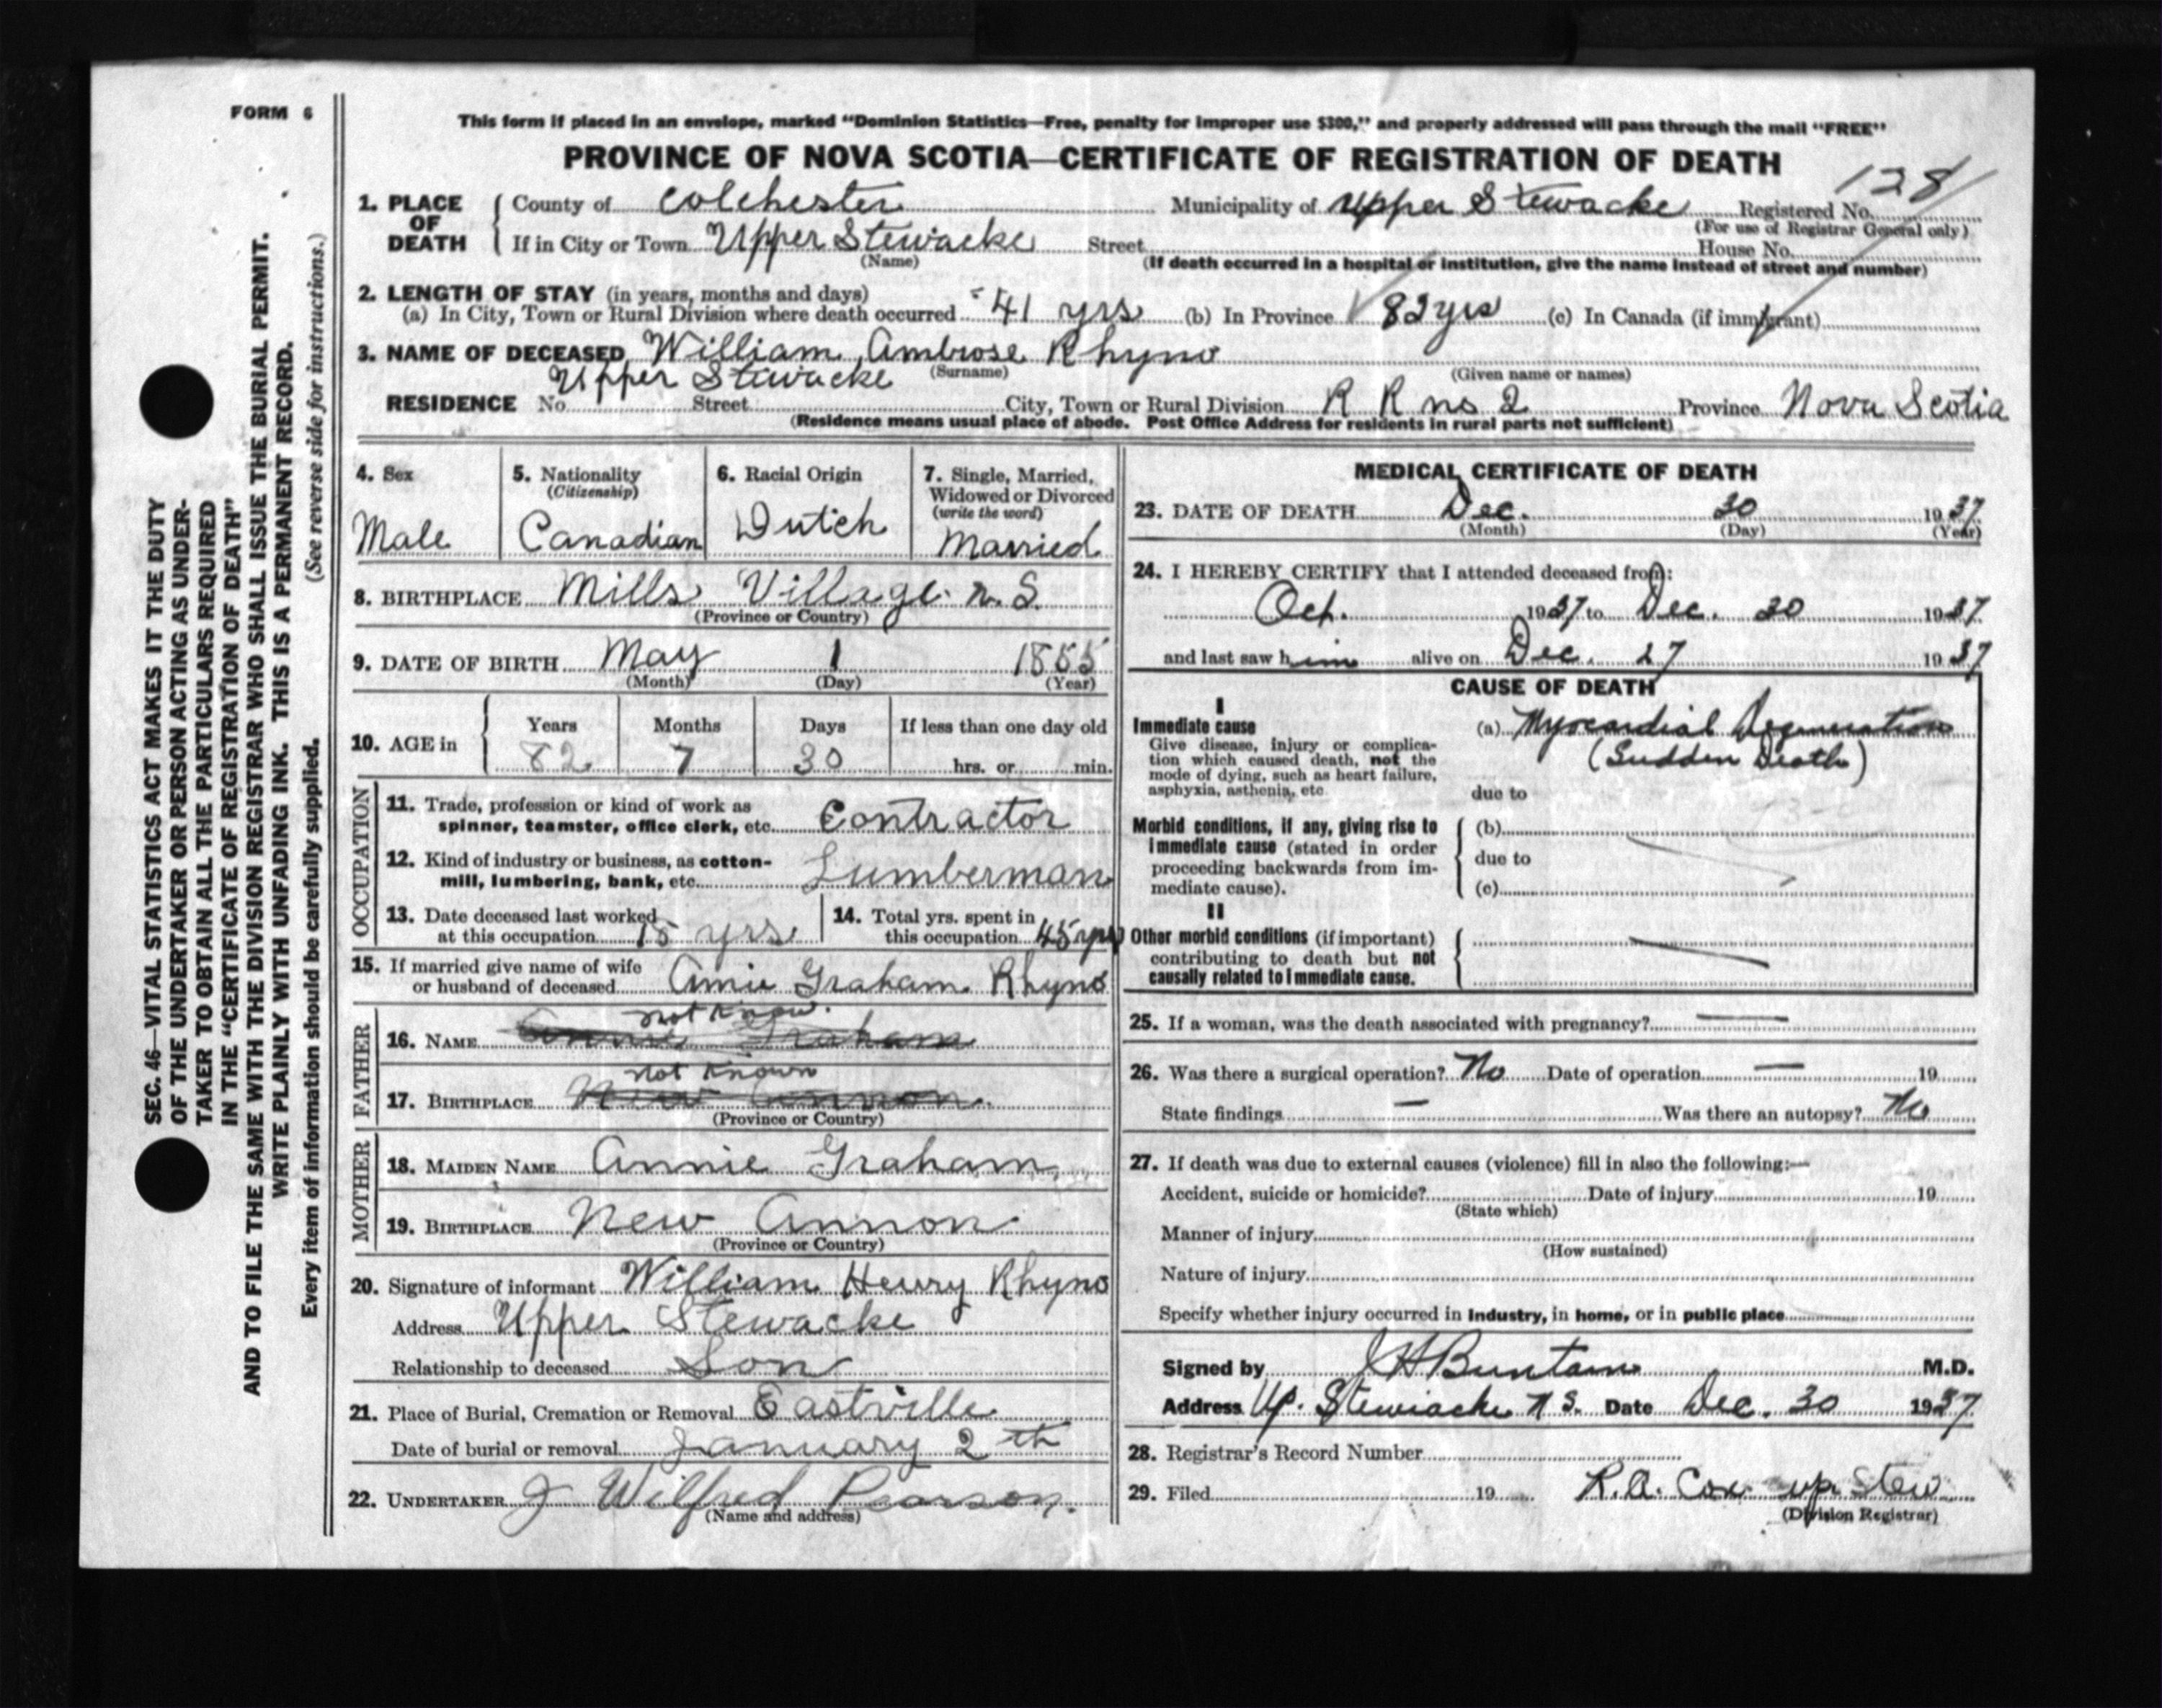 FORM 6
This form if placed in an envelope, marked "Dominion Statistics—Free, penalty for improper use $300," and properly addressed will pass through the mail "FREE"
PROVINCE OF NOVA SCOTIA—CERTIFICATE OF REGISTRATION OF DEATH
128
1. PLACE OF DEATH { County of Colchester Municipality of Upper Stewacke Registered No.
(For use of Registrar General only)
If in City or Town Upper Stewacke Street House No.
(Name) (If death occurred in a hospital or institution, give the name instead of street and number)
2. LENGTH OF STAY (in years, months and days)
(a) In City, Town or Rural Division where death occurred 41 yrs (b) In Province 82 yrs (c) In Canada (if immigrant)
3. NAME OF DECEASED William Ambrose Rhyno
(Surname) (Given name or names)
Upper Stewacke
RESIDENCE No. Street City, Town or Rural Division R R no 2 Province Nova Scotia
(Residence means usual place of abode. Post Office Address for residents in rural parts not sufficient)
4. Sex
Male
5. Nationality
(Citizenship)
Canadian
6. Racial Origin
Dutch
7. Single, Married,
Widowed or Divorced
(write the word)
Married
8. BIRTHPLACE Mills Village N. S.
(Province or Country)
9. DATE OF BIRTH May 1 1855
(Month) (Day) (Year)
10. AGE in { Years Months Days If less than one day old
82 7 30 hrs. or min.
OCCUPATION
11. Trade, profession or kind of work as
spinner, teamster, office clerk, etc. Contractor
12. Kind of industry or business, as cotton-
mill, lumbering, bank, etc. Lumberman
13. Date deceased last worked
at this occupation 15 yrs
14. Total yrs. spent in
this occupation 45 yrs
15. If married give name of wife
or husband of deceased Annie Graham Rhyno
FATHER
not Know.
16. NAME Annie Graham
not Known
17. BIRTHPLACE New Annon.
(Province or Country)
MOTHER
18. MAIDEN NAME Annie Graham
19. BIRTHPLACE New Annon
(Province or Country)
20. Signature of informant William Henry Rhyno
Address Upper Stewacke
Relationship to deceased Son
21. Place of Burial, Cremation or Removal Eastville
Date of burial or removal January 2th
22. UNDERTAKER J Wilfred Pearson.
(Name and address)
MEDICAL CERTIFICATE OF DEATH
23. DATE OF DEATH Dec. 30 1937
(Month) (Day) (Year)
24. I HEREBY CERTIFY that I attended deceased from:
Oct. 1937 to Dec. 30 1937
and last saw him alive on Dec. 27 1937
CAUSE OF DEATH
I
Immediate cause
Give disease, injury or complica-
tion which caused death, not the
mode of dying, such as heart failure,
asphyxia, asthenia, etc.
(a) Myocardial Degeneration
(Sudden Death)
due to
Morbid conditions, if any, giving rise to
immediate cause (stated in order
proceeding backwards from im-
mediate cause).
(b)
due to
(c)
II
Other morbid conditions (if important)
contributing to death but not
causally related to immediate cause.
25. If a woman, was the death associated with pregnancy? —
26. Was there a surgical operation? No Date of operation — 19
State findings — Was there an autopsy? No
27. If death was due to external causes (violence) fill in also the following:—
Accident, suicide or homicide? Date of injury 19
(State which)
Manner of injury
(How sustained)
Nature of injury
Specify whether injury occurred in industry, in home, or in public place
Signed by J H Buntain M.D.
Address Up. Stewiacke N S. Date Dec. 30 1937
28. Registrar's Record Number
29. Filed 19 R. A. Cox up. Stew
(Division Registrar)
SEC. 46—VITAL STATISTICS ACT MAKES IT THE DUTY
OF THE UNDERTAKER OR PERSON ACTING AS UNDER-
TAKER TO OBTAIN ALL THE PARTICULARS REQUIRED
IN THE "CERTIFICATE OF REGISTRATION OF DEATH"
AND TO FILE THE SAME WITH THE DIVISION REGISTRAR WHO SHALL ISSUE THE BURIAL PERMIT.
WRITE PLAINLY WITH UNFADING INK. THIS IS A PERMANENT RECORD.
Every item of information should be carefully supplied. (See reverse side for instructions.)